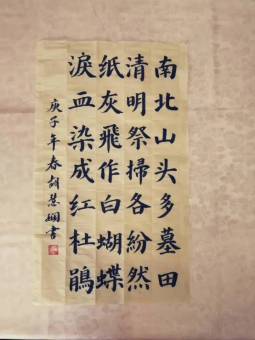 南北山头多墓田
清明祭掃各紛然
纸灰飛作白蝴蝶
淚血染成红杜鵑
庚子年春胡慧嫻書